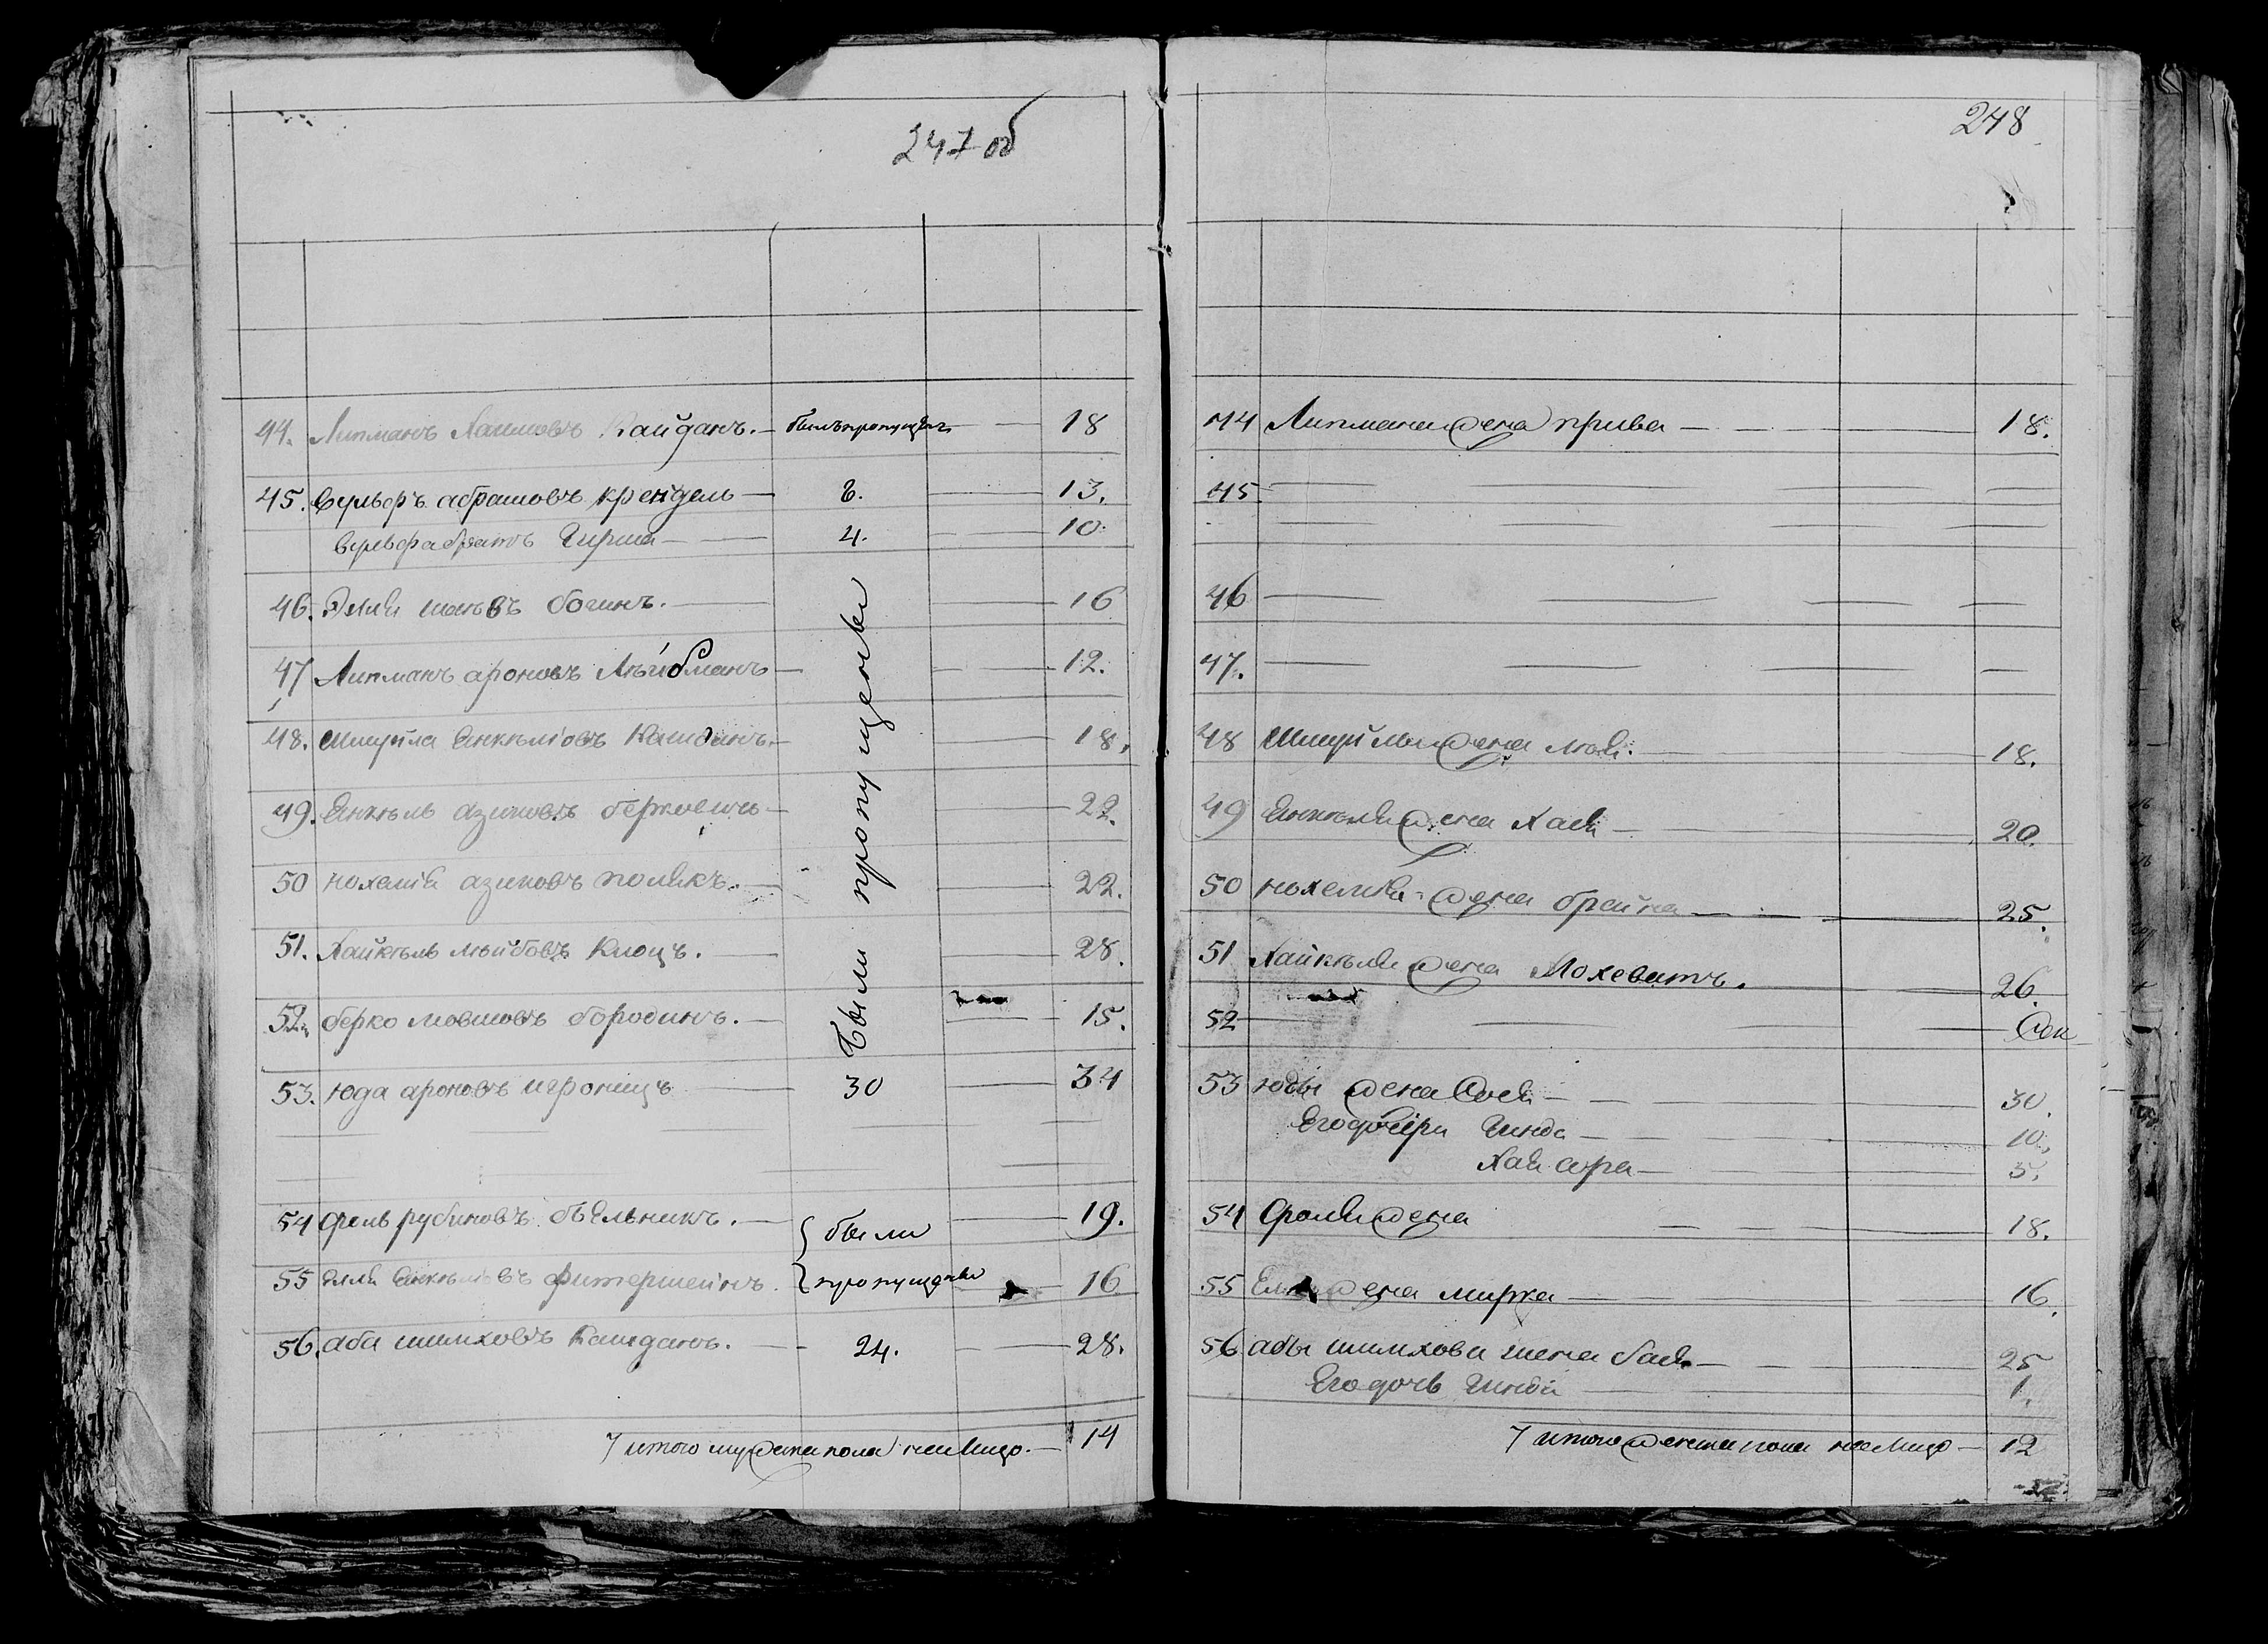 247 об
44. Липманъ Хаимовъ Кайданъ. — былъ пропущенъ — 18
45. Вульфъ абрамовъ крендель — 8. — 13.
Вульфа братъ Гирша — 4. — 10
46. Элья богинъ. — 16
47 Липманъ ароновъ Лѣйбманъ — 12.
48. Шмуйла Янкѣліовъ — 18.
49. Янкѣль азиковъ берковичъ — 22.
50 нохемія азиковъ полякъ. — 22.
51. Хайкѣль лѣйбовъ Клоцъ. — 28.
52. берко мовшовъ бородинъ. — 15.
Были пропущены
53. юда ароновъ игроницъ — 30 — 34
54 фроль рубиновъ бѣльникъ. — были — 19.
55 Элья Янкѣліовъ фитерштейнъ — пропущены — 16
56. аба шимховъ Кайданъ. — 24. — 28.
итого мужеска пола налицо. — 14
248
44 Липмана жена прива — 18.
45
46
47.
48 Шмуйлы жена 18.
49 Янкѣля жена Хая — 20.
50 нохемія жена брайна — 25.
51 Хайкѣля жена Мохевитъ. 26.
52
53 юды жена — 30.
Его дочери Гинда — 10.
Хая сора — 5.
54 фроля жена 18.
55 жена мирка — 16.
56 абы шимхова жена бася — 25
Его дочь Гинда 1.
итого женска пола налицо — 12